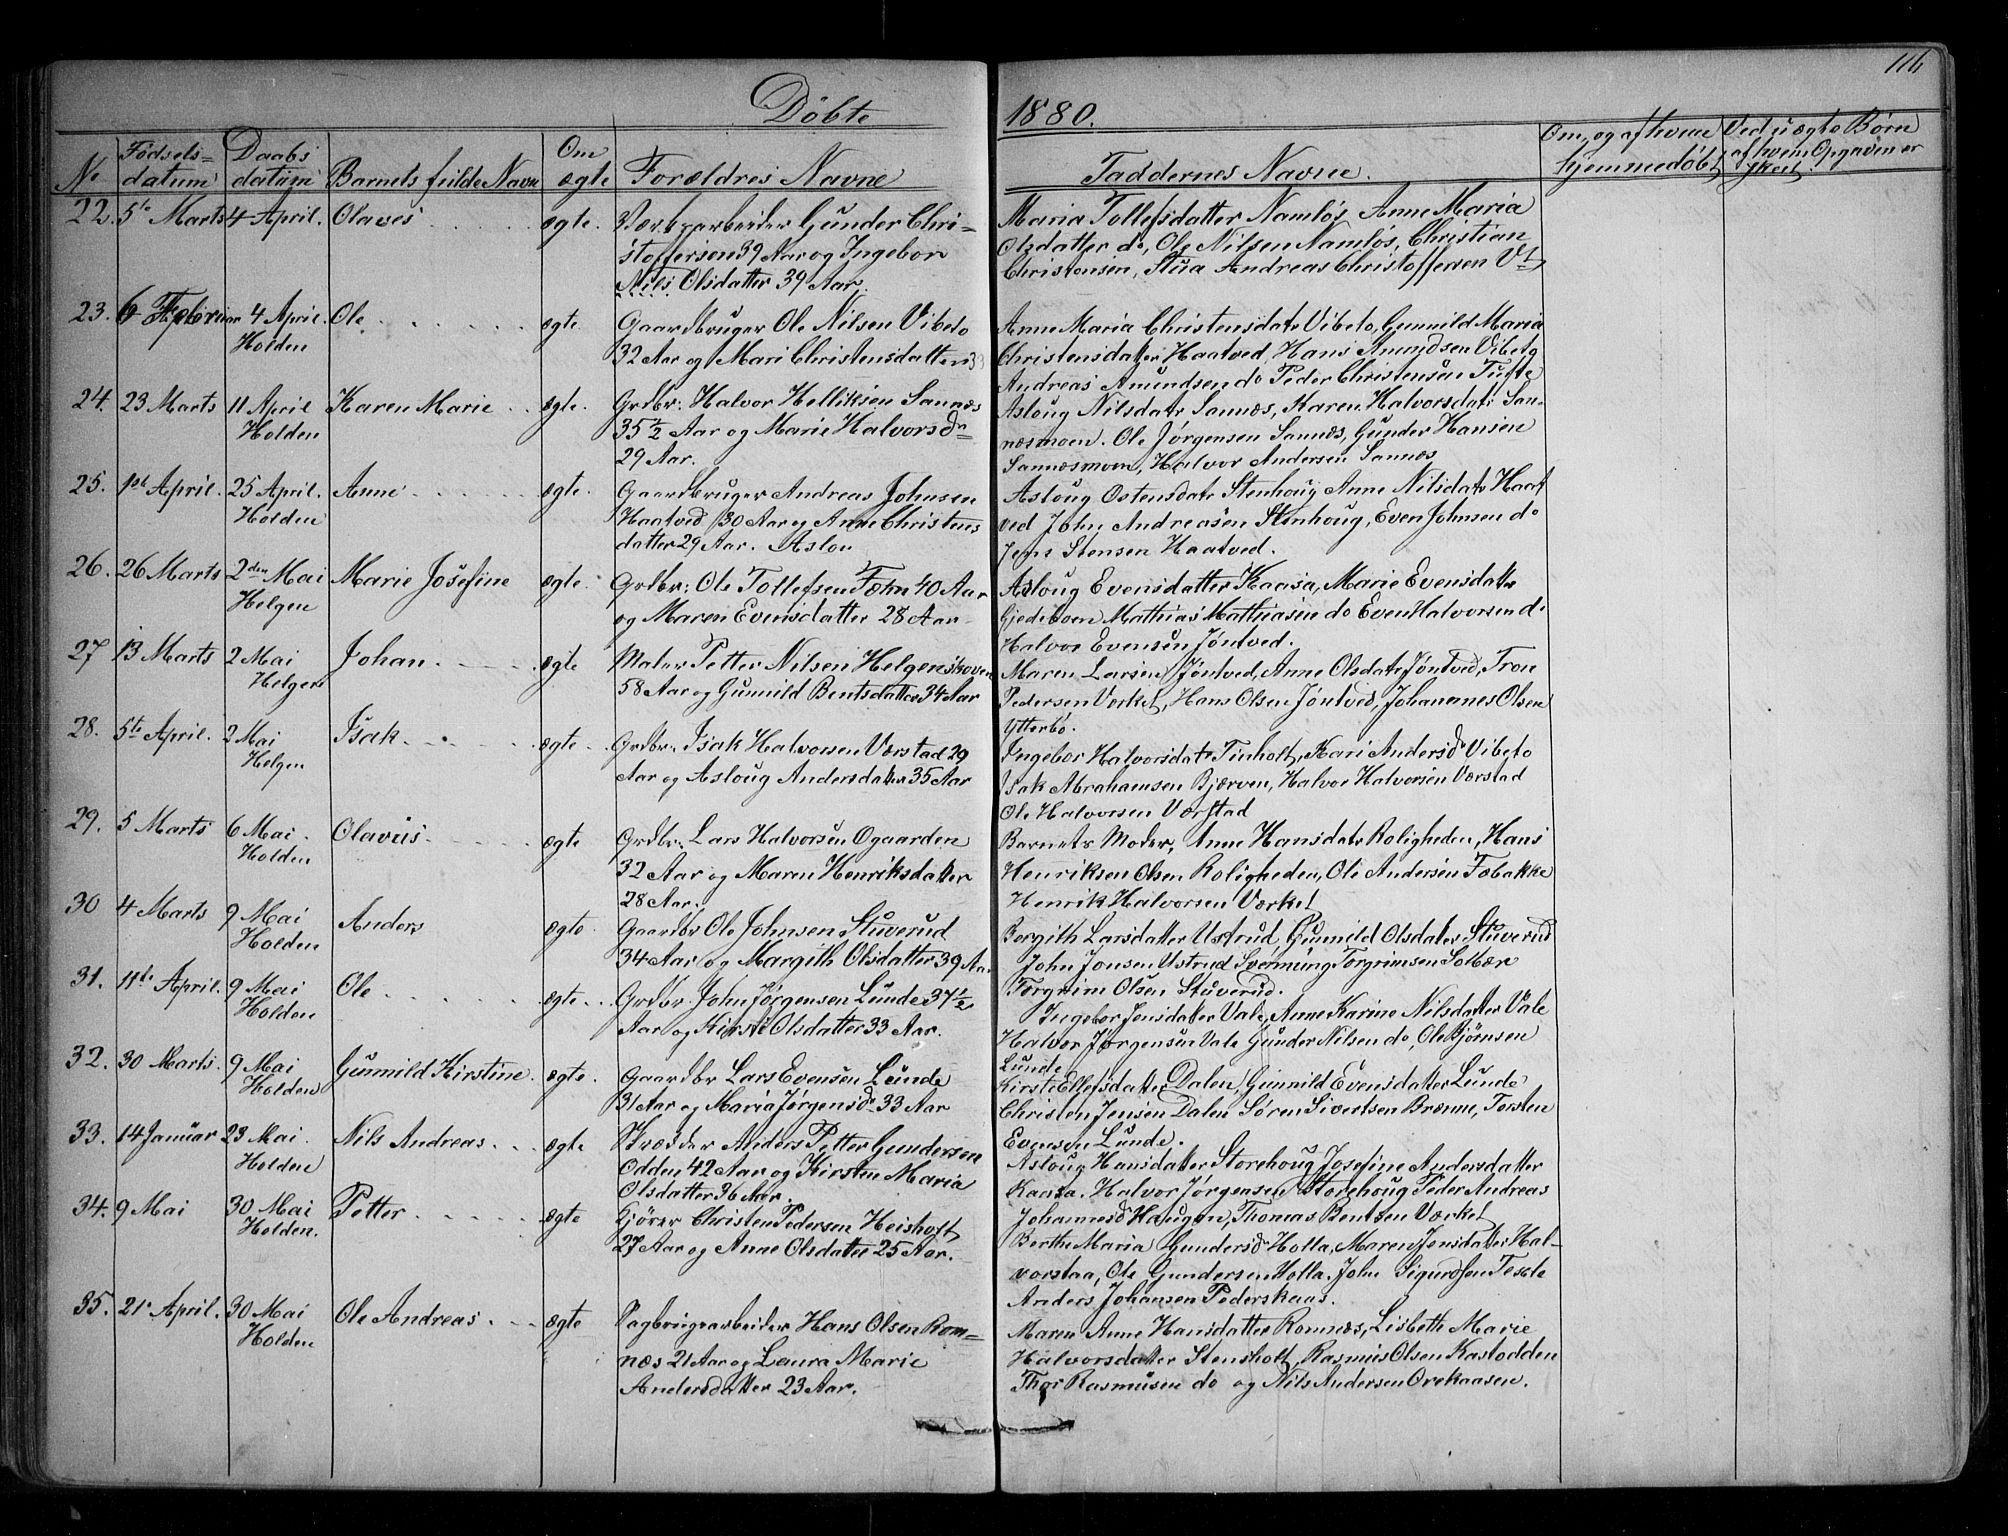 116
Döbte 1880.
No Fødsels-datum Daabs datum Barnets fulde Navn Om ægte Forældres Navne Faddernes Navne. Om, og af hvem hjemmedøbt Ved uægte Børn af hvem Opgaven er skeet
22. 5te Marts 4 April. Olaves ægte. Værksarbeider Gunder Chri-
stoffersen 39 Aar og Ingebor
Nils Olsdatter 39 Aar.
Maria Tollefsdatter Namløs, Anne Maria
Olsdatter do, Ole Nilsen Namløs, Christian
Christensen, Stua Andreas Christoffersen
23. 6 Februar 4 April. Holden Ole ægte Gaardbruger Ole Nilsen Vibeto
32 Aar og Mari Christensdatter 33
Anne Maria Christensdatr Vibeto, Gunnild Maria
Christensdatter Haatved, Hans Amundsen Vibeto
Andreas Amundsen do Peder Christensen Tufte
24. 23 Marts 11 April Holden Karen Marie ægte. Grdbr: Halvor Helliksen Sannæs
35 1/2 Aar og Marie Halvorsdr
29 Aar.
Asloug Nilsdatr Sannæs, Karen Halvorsdatr San-
næsmoen. Ole Jørgensen Sannæs, Gunder Hansen
Sannæsmoen, Halvor Andersen Sannæs
25. 1ste April. 25 April. Holden Anne ægte. Gaardbruger Andreas Johnsen
Haatved 30 Aar og Anne Christens
datter 29 Aar. Aslou
Asloug Ostensdatr Stenhoug Anne Nilsdatr Haat
ved John Andreasen Stenhoug, Even Johnsen do
Jens Stensen Haatved.
26. 26 Marts 2den Mai Helgen Marie Josefine ægte. Grdbr: Ole Tollefsen Fæhn 40 Aar
og Maren Evensdatter 28 Aar
Asloug Evensdatter Kaasa, Marie Evensdattr
Gjedeboen Mathias Mathiasen do Even Halvorsen do
Halvor Evensen Jøntved.
27 13 Marts 2 Mai Helgen Johan ægte Maler Petter Nilsen Helgenskoven
58 Aar og Gunnild Bentsdatter 34 Aar
Maren Larsen Jøntved, Anne Olsdatr Jøntved, Tron
Pedersen Værket, Hans Olsen Jøntved, Johannes Olsen
Ytterbö.
28. 5te April. 2 Mai Helgen Isak ægte Grdbr: Isak Halvorsen Værstad 29
Aar og Asloug Andersdatter 35 Aar
Ingebor Halvorsdatr Tinholt, Kari Andersdr Vibeto
Isak Abrahamsen Bjerven, Halvor Halvorsen Værstad
Ole Halvorsen Værstad
29. 5 Marts 6 Mai Holden Olavus ægte Grdbr: Lars Halvorsen Ogaarden
32 Aar og Maren Henriksdatter
28 Aar.
Barnets Moder, Anne Hansdatr Roligheden, Hans
Henriksen Olsen Roligheden, Ole Andersen Febakke
Henrik Halvorsen Værket
30 4 Marts 9 Mai Holden Anders ægte Gaardbr Ole Johnsen Stuverud
34 Aar og Margith Olsdatter 39 Aar
Bergith Larsdatter Ustrud, Gunnild Olsdatr Stuverud
John Jonsen Ustrud Svennung Torgrimsen Solbær
Torgrim Olsen Stuverud.
31. 11te April. 9 Mai Holden Ole ægte Grdbr. John Jørgensen Lunde 37 1/2
Aar og Kirsti Olsdatter 33 Aar.
Ingebor Jensdatter Vale, Anne Karine Nilsdatter Vale
Halvor Jørgensen Vale Gunder Nilsen do, Ole Bjørnsen
Lunde
32. 30 Marts 9 Mai Holden Gunnild Kirstine ægte. Gaardbr Lars Evensen Lunde
31 Aar og Maria Jørgensdr 33 Aar
Kirsti Ellefsdatter Dalen, Gunnild Evensdatter Lunde
Christen Jensen Dalen Søren Sivertsen Brænne, Torsten
Evensen Lunde.
33. 14 Januar 23 Mai Holden Nils Andreas ægte Skrædder Anders Petter Gundersen
Odden 42 Aar og Kirsten Maria
Olsdatter 36 Aar.
Asloug Hansdatter Storehoug Josefine Andersdatter
Kaasa. Halvor Jørgensen Storehoug Peder Andreas
Johannesd Haugen, Thomas Bentsen Værket
34. 9 Mai 30 Mai Holden. Petter ægte Kjører Christen Pedersen Heisholt
27 Aar og Anne Olsdatter 25 Aar.
Berthe Maria Gundersdr Holla, Maren Jensdatter Hal-
vorstaa, Ole Gundersen Holla. John Sigurdsen
Anders Johansen Pederskaas.
35. 21 April. 30 Mai Holden Ole Andreas ægte Sagbrugsarbeider Hans Olsen Rom-
næs 21 Aar og Laura Marie
Andersdatter 23 Aar.
Maren Anne Hansdatter Romnæs, Lisbeth Marie
Halvorsdatter Stensholt, Rasmus Olsen Kastodden
Thor Rasmusen do og Nils Andersen Orekaasen.